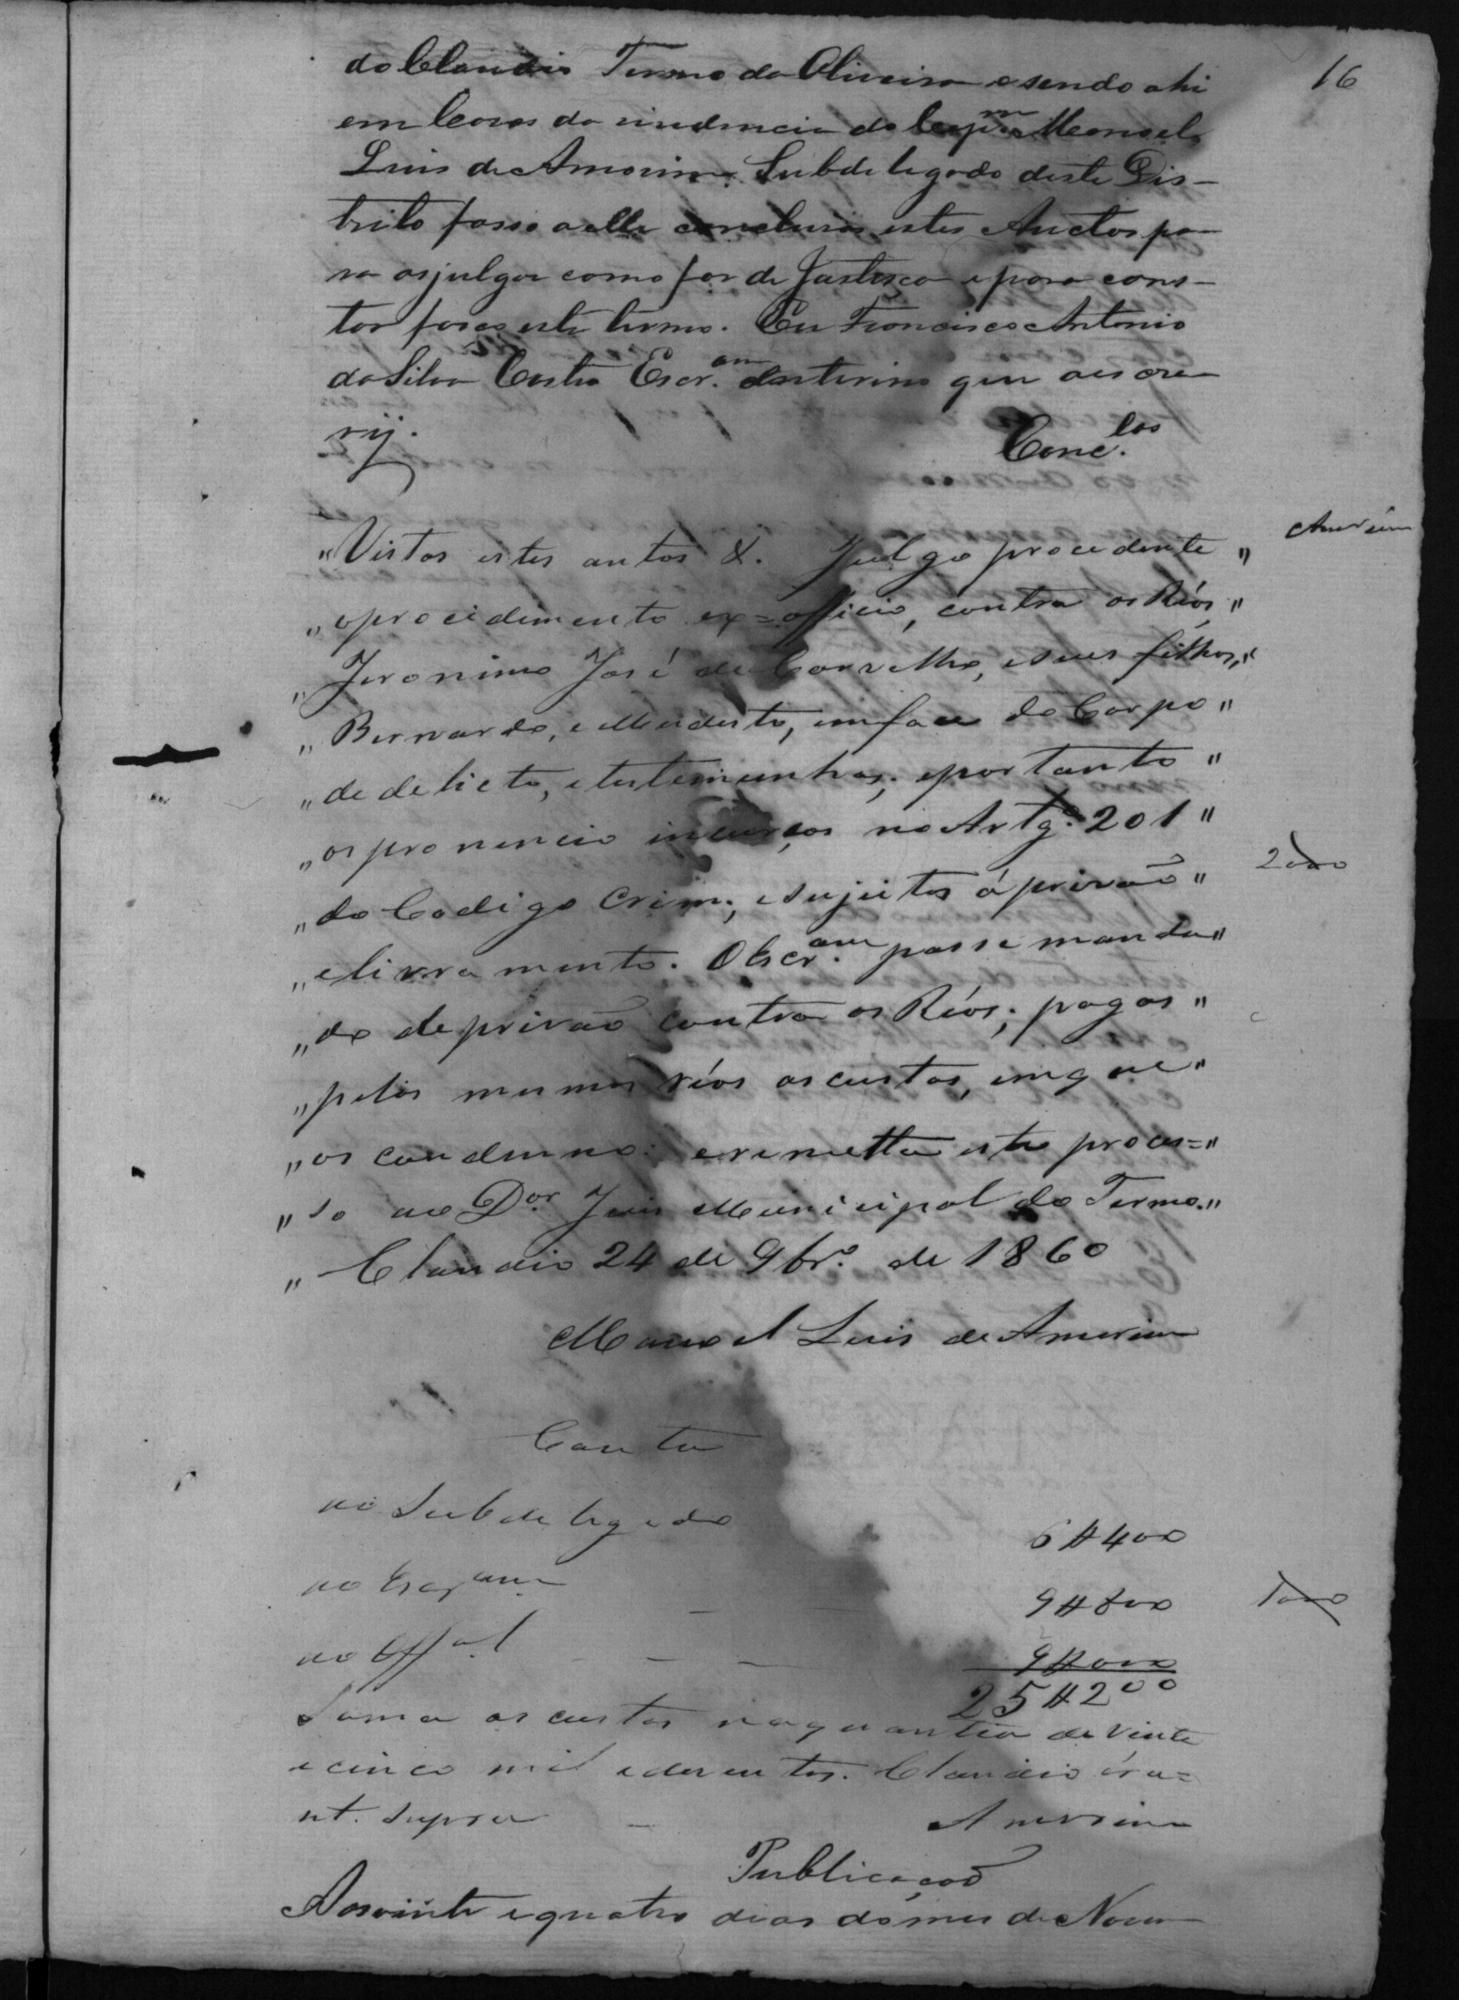 16
do Claudio Termo da Oliveira e sendo ahi
em Casas da residencia do Capm. Manoel
Luis de Amorim Subdelegado deste Dis-
trito faço a elle concluzos estes Auctos pa-
ra os julgar como for de Justisca e para cons-
tar faço este termo. Eu Francisco Antonio
da Silva Castro Escr.am Enterino que o escre-
vy.
Conc.los
Amorim
"Vistos estes autos &. Julgo procedente"
"o procedimento ex=officio, contra os Réos,"
"Jeronimo José de Carvalho, e seus filhos,"
"Bernardo, e Modesto, em face do Corpo"
"de delicto, e testemunhas; e por tanto"
"os pronuncio incursos no Artg.o 201"
2000
"do Codigo Crim., e sujeitos á prizão"
"e livramento. O Escr.am passe manda"
"do de prizão contra os Réos; pagas"
"pelos mesmos réos as custas, em que"
"os condemno: e remetta este proces="
"so ao D.or Juis Municipal do Termo."
"Claudio 24 de 9br.o de 1860
Manoel Luis de Amorim
Conta
ao Subdelegado 6#400
ao Escr.am - - 9#800
1000
ao Off.al - - 9#000
25#200
Soma as custas na quantia de vinte
e cinco mil e duzentos. Claudio éra=
ut. supra - Amorim
Publicaçaõ
Aos vinte e quatro dias do mes de Novem-